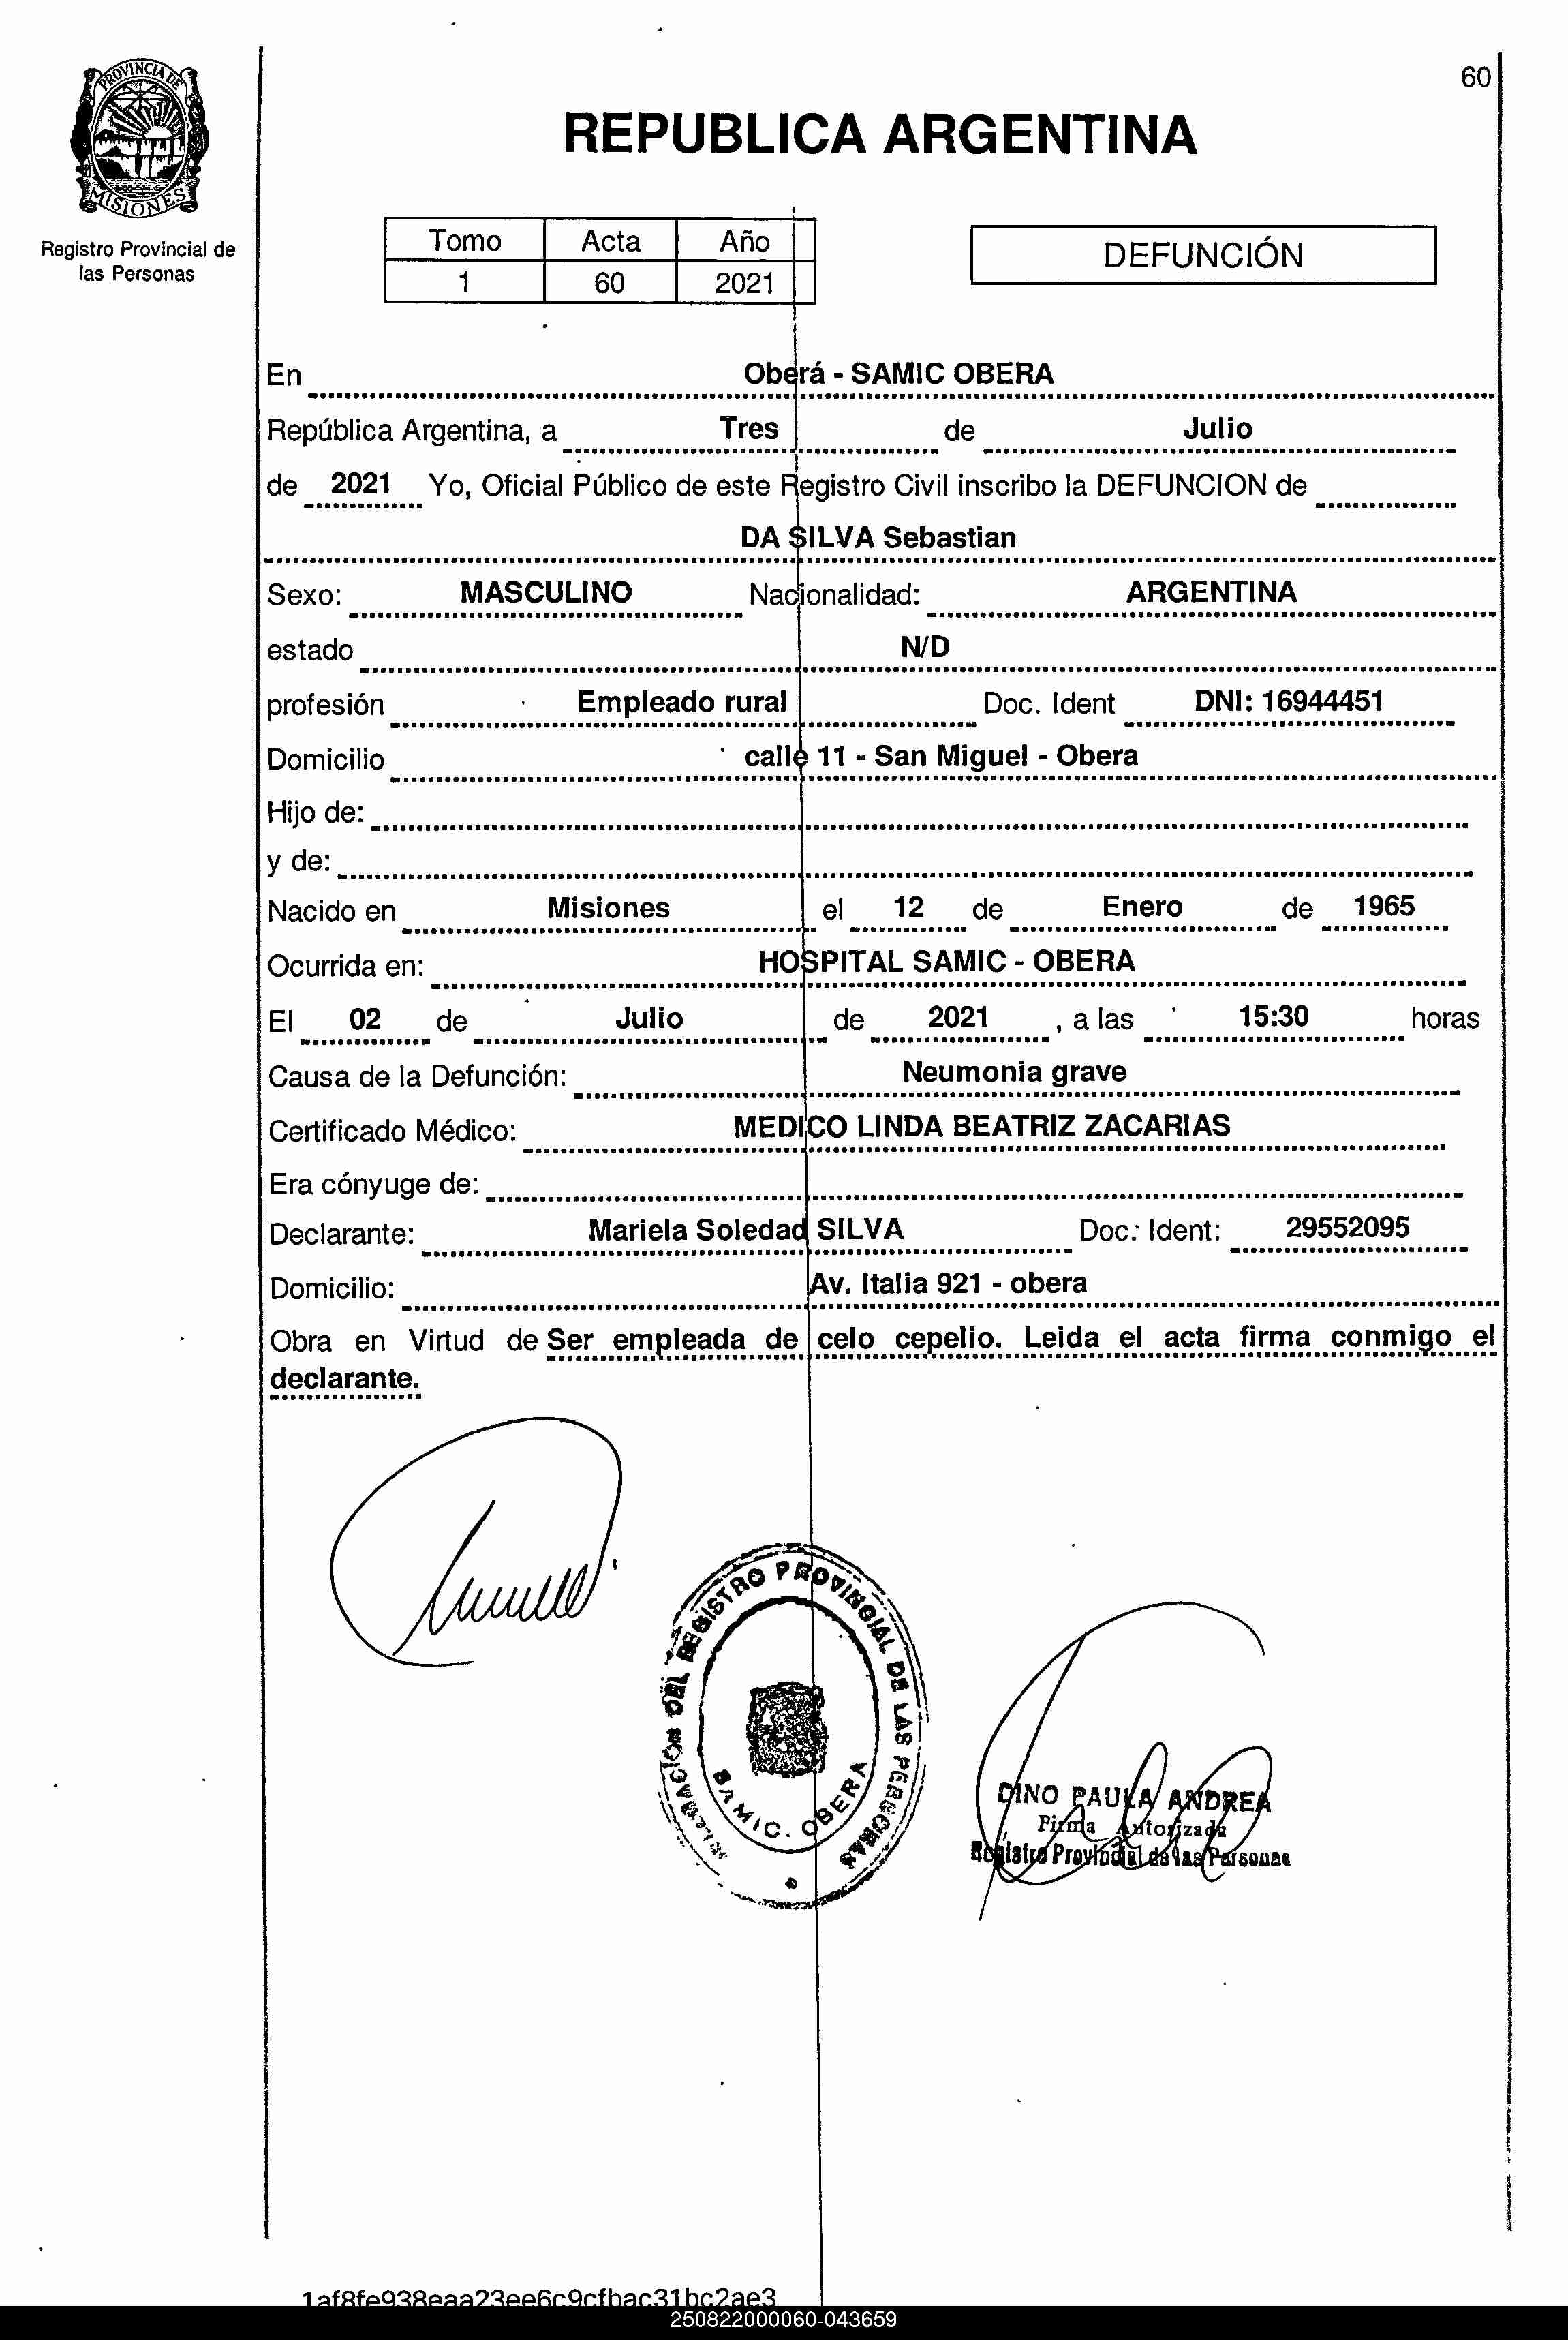 60
PROVINCIA DE
MISIONES
Registro Provincial de
las Personas
REPUBLICA ARGENTINA
Tomo Acta Año
1 60 2021
DEFUNCIÓN
En Oberá - SAMIC OBERA
República Argentina, a Tres de Julio
de 2021 Yo, Oficial Público de este Registro Civil inscribo la DEFUNCION de
DA SILVA Sebastian
Sexo: MASCULINO Nacionalidad: ARGENTINA
estado N/D
profesión Empleado rural Doc. Ident DNI: 16944451
Domicilio calle 11 - San Miguel - Obera
Hijo de:
y de:
Nacido en Misiones el 12 de Enero de 1965
Ocurrida en: HOSPITAL SAMIC - OBERA
El 02 de Julio de 2021 , a las 15:30 horas
Causa de la Defunción: Neumonia grave
Certificado Médico: MEDICO LINDA BEATRIZ ZACARIAS
Era cónyuge de:
Declarante: Mariela Soledad SILVA Doc: Ident: 29552095
Domicilio: Av. Italia 921 - obera
Obra en Virtud de Ser empleada de celo cepelio. Leida el acta firma conmigo el
declarante.
DEL REGISTRO PROVINCIAL DE LAS PERSONAS
SAMIC. OBERA
DINO PAULA ANDREA
Firma Autorizada
Registro Provincial de las Personas
1af8fe938eaa23ee6c9cfbac31bc2ae3
250822000060-043659